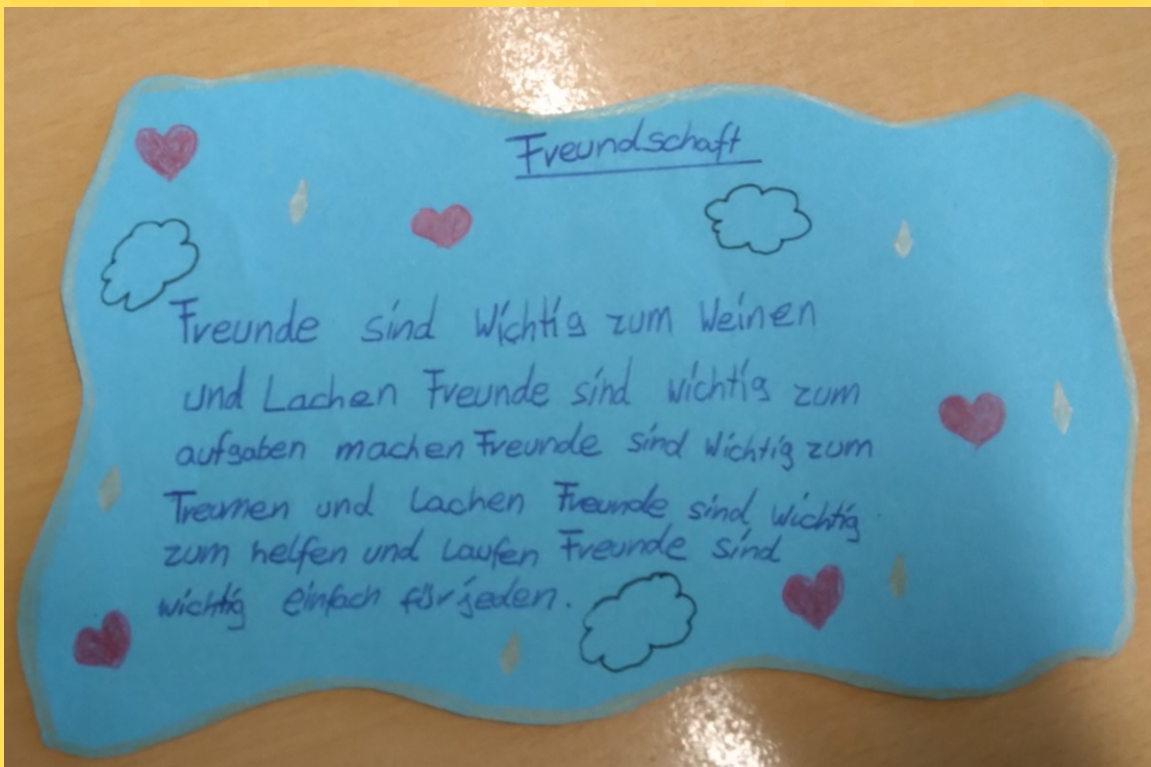 Freundschaft
Freunde sind Wichtig zum Weinen
und Lachen Freunde sind wichtig zum
aufgaben machen Freunde sind Wichtig zum
Treumen und Lachen Freunde sind wichtig
zum helfen und Laufen Freunde sind
wichtig einfach für jeden.